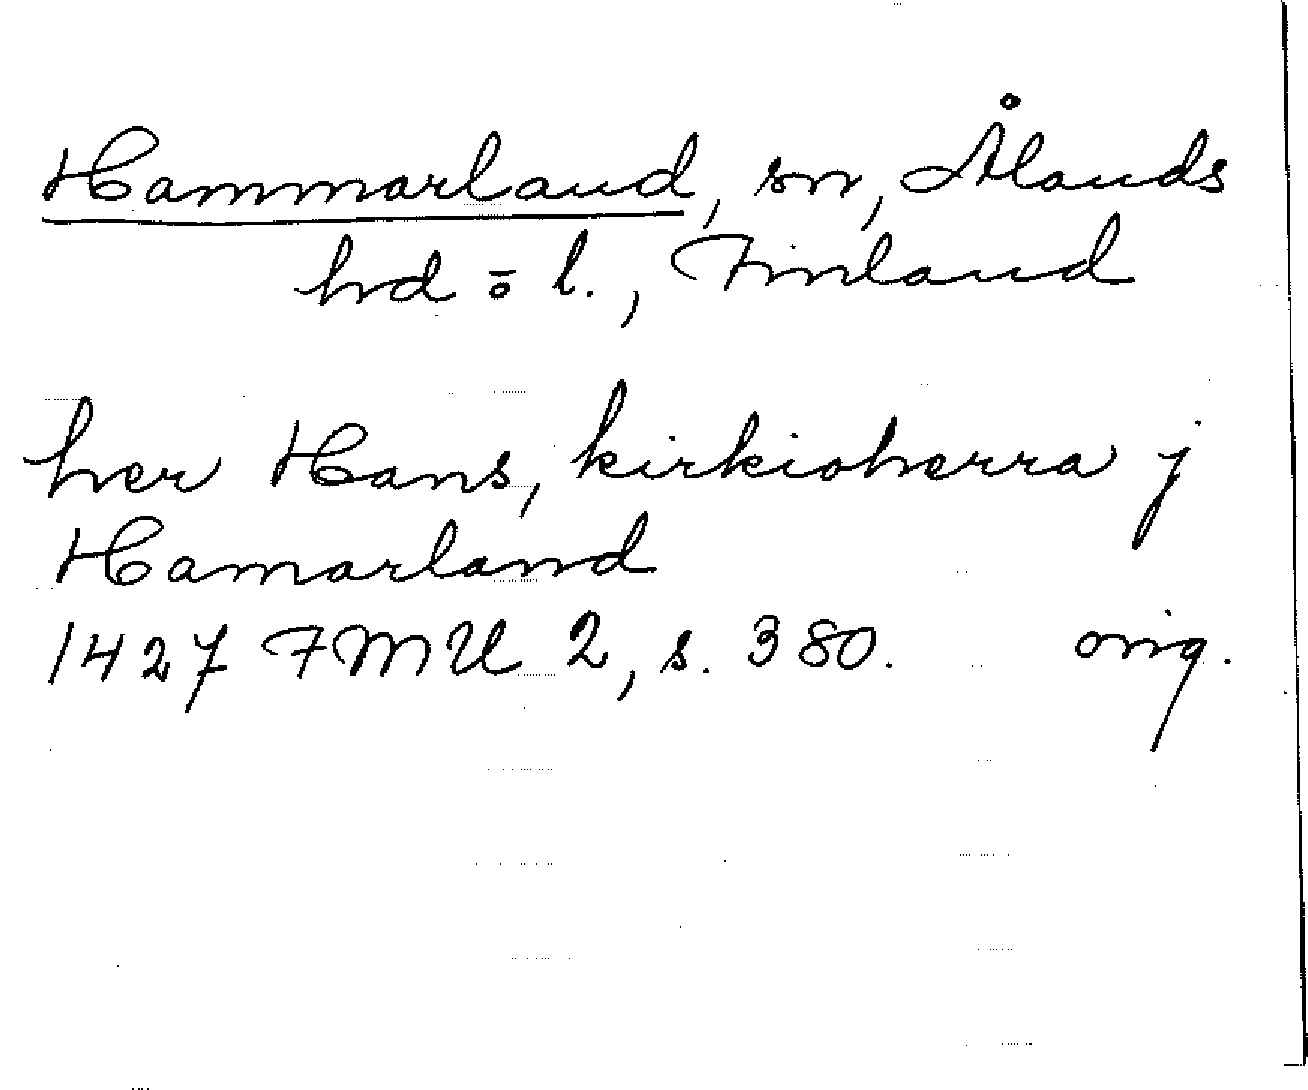 Hammarland, sn, Ålands
hd o l., Finland
her Hans, kirkioherra j
Hamarland
1427 FMU 2, s. 380. orig.